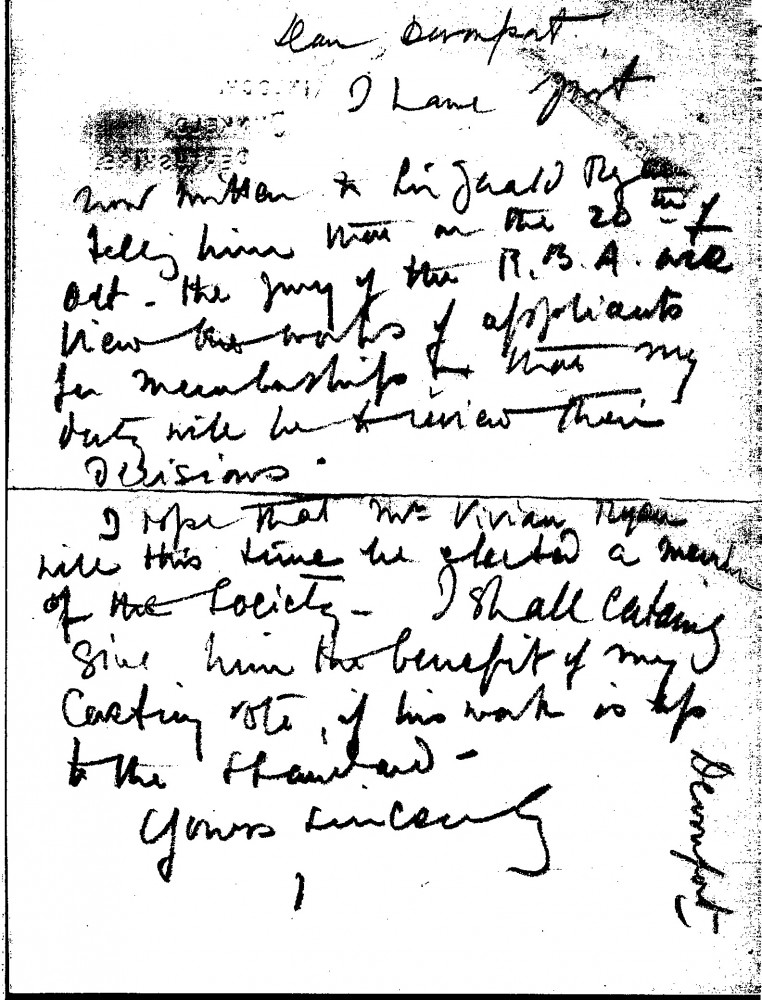 Dear Devonport.
I have just
now written to Sir Gerald Ryan
telling him that on the 20th of
Oct - the jury of the R.B.A. are
view the works of applicants
for membership & that my
duty will be to review their
Decisions.
I hope that Mr Vivian Ryan
will this time be elected a mem
of the Society - I shall certainly
give him the benefit of my
Casting vote, if his work is up
to the standard -
Yours sincerely
Devonport